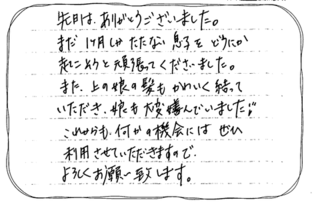 先日は、ありがとうございました。
まだ1ヶ月しかたたない息子をどうにか
起こそうと頑張ってくださいました。
また、上の娘の髪もかわいく結って
いただき、娘も大変喜んでいました!
これからも、何かの機会には ぜひ
利用させていただきますので、
よろしくお願い致します。